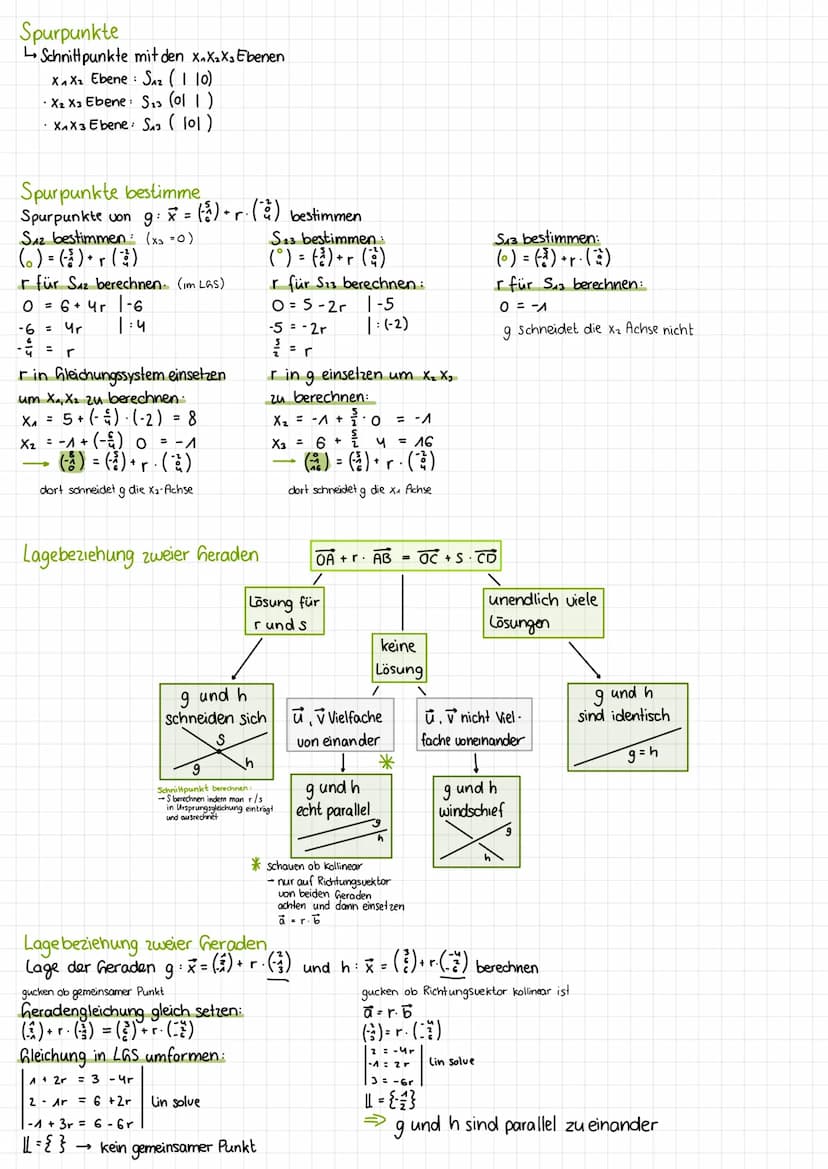 Spurpunkte
↳ Schnittpunkte mit den x₁x₂x₃ Ebenen
x₁x₂ Ebene: S₁₂ ( | |0)
· x₂x₃ Ebene: S₂₃ (0| | )
· x₁x₃ Ebene: S₁₃ ( |0| )
Spurpunkte bestimme
Spurpunkte von g: x⃗ = (5 -1 6) + r · (-2 0 4) bestimmen
S₁₂ bestimmen: (x₃ = 0)
( 0) = (5 -1 6) + r (-2 0 4)
r für S₁₂ berechnen: (im LGS)
0 = 6 + 4r |-6
-6 = 4r | : 4
-6/4 = r
r in Gleichungssystem einsetzen
um x₁,x₂ zu berechnen:
x₁ = 5 + (-6/4) · (-2) = 8
x₂ = -1 + (-6/4) 0 = -1
→ (8 -1 0) = (5 -1 6) + r · (-2 0 4)
dort schneidet g die x₃-Achse
S₂₃ bestimmen:
(0 ) = (5 -1 6) + r (-2 0 4)
r für S₁₃ berechnen:
0 = 5 - 2r |-5
-5 = -2r | : (-2)
5/2 = r
r in g einsetzen um x₂ x₃
zu berechnen:
x₂ = -1 + 5/2 · 0 = -1
x₃ = 6 + 5/2 4 = 16
→ (0 -1 16) = (5 -1 6) + r · (-2 0 4)
dort schneidet g die x₁ Achse
S₁₃ bestimmen:
( 0 ) = (5 -1 6) + r · (-2 0 4)
r für S₁₃ berechnen:
0 = -1
g schneidet die x₂ Achse nicht
Lagebeziehung zweier Geraden
OA + r · AB = OC + s · CD
Lösung für
r und s
keine
Lösung
unendlich viele
Lösungen
g und h
schneiden sich
S
g
h
u⃗, v⃗ Vielfache
von einander
u⃗, v⃗ nicht Viel-
fache voneinander
g und h
sind identisch
g = h
Schnittpunkt berechnen:
→ S berechnen indem man r/s
in Ursprungsgleichung einträgt
und ausrechnet
*
g und h
echt parallel
g
h
g und h
windschief
g
h
* schauen ob kollinear
→ nur auf Richtungsvektor
von beiden Geraden
achten und dann einsetzen
a⃗ = r · b⃗
Lagebeziehung zweier Geraden
Lage der Geraden g: x⃗ = (1 2 -1) + r · (2 -1 3) und h: x⃗ = (3 6 6) + r · (-4 2 -6) berechnen
gucken ob gemeinsamer Punkt
Geradengleichung gleich setzen:
(1 2 -1) + r · (2 -1 3) = (3 6 6) + r · (-4 2 -6)
Gleichung in LGS umformen:
1 + 2r = 3 - 4r
2 - 1r = 6 + 2r lin solve
-1 + 3r = 6 - 6r
𝕃 = { } → kein gemeinsamer Punkt
gucken ob Richtungsvektor kollinear ist
a⃗ = r · b⃗
(2 -1 3) = r · (-4 2 -6)
2 = -4r
-1 = 2r lin solve
3 = -6r
𝕃 = {-1/2}
⇒ g und h sind parallel zueinander